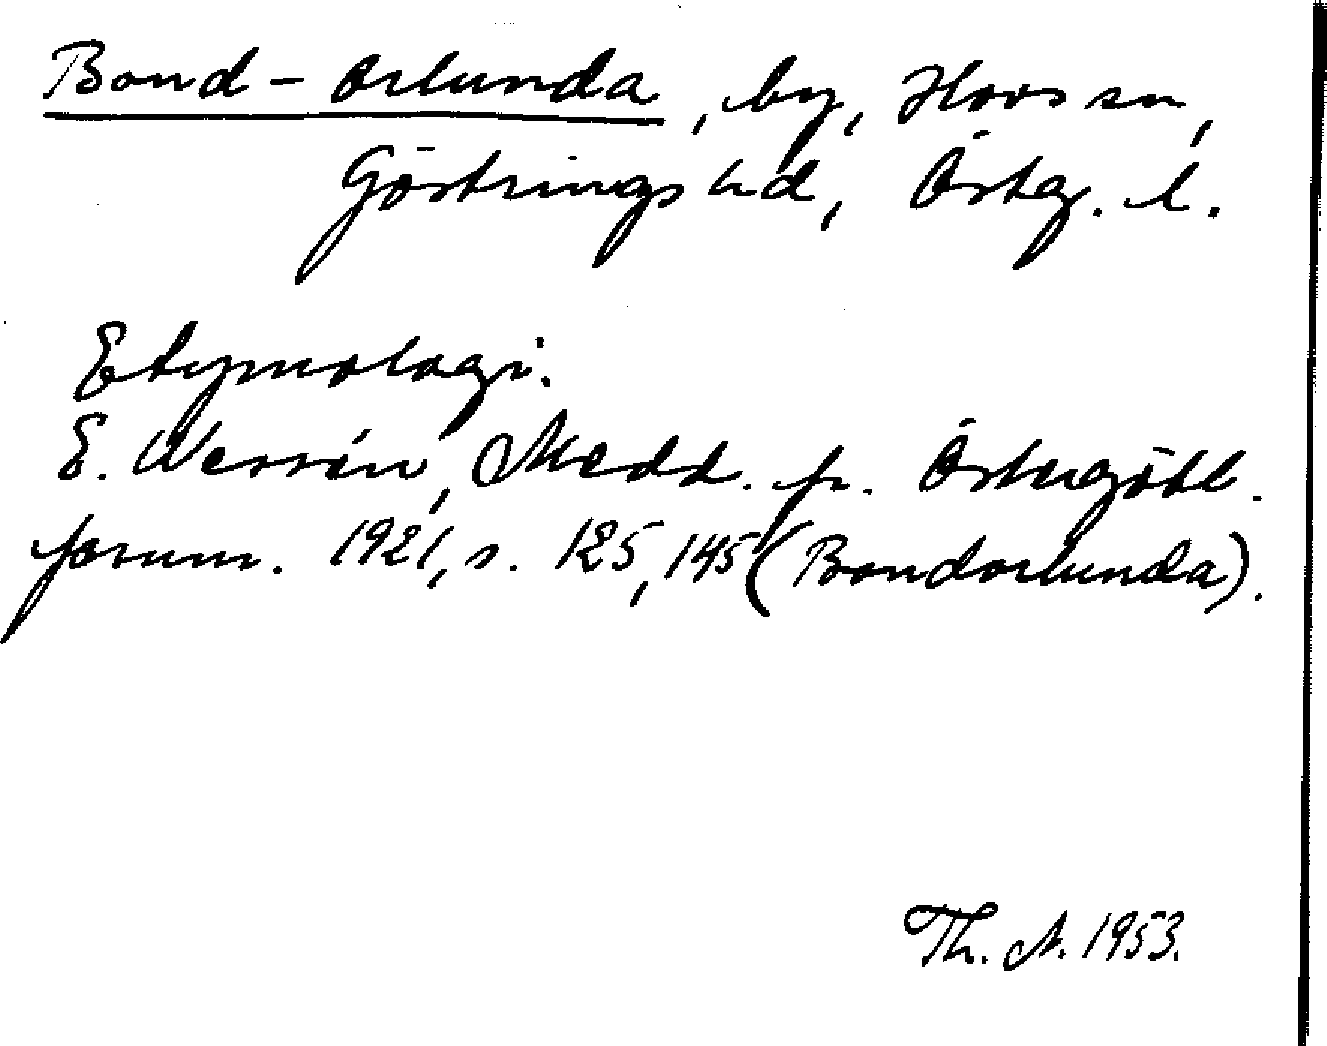 Bond-Orlunda, by, Hovs sn,
Göstrings hd, Östg. l.
Etymologi.
E. Wessén, Medd. fr. Östergötl.
fornm. 1921, s. 125, 145 (Bondorlunda).
Th. A. 1953.